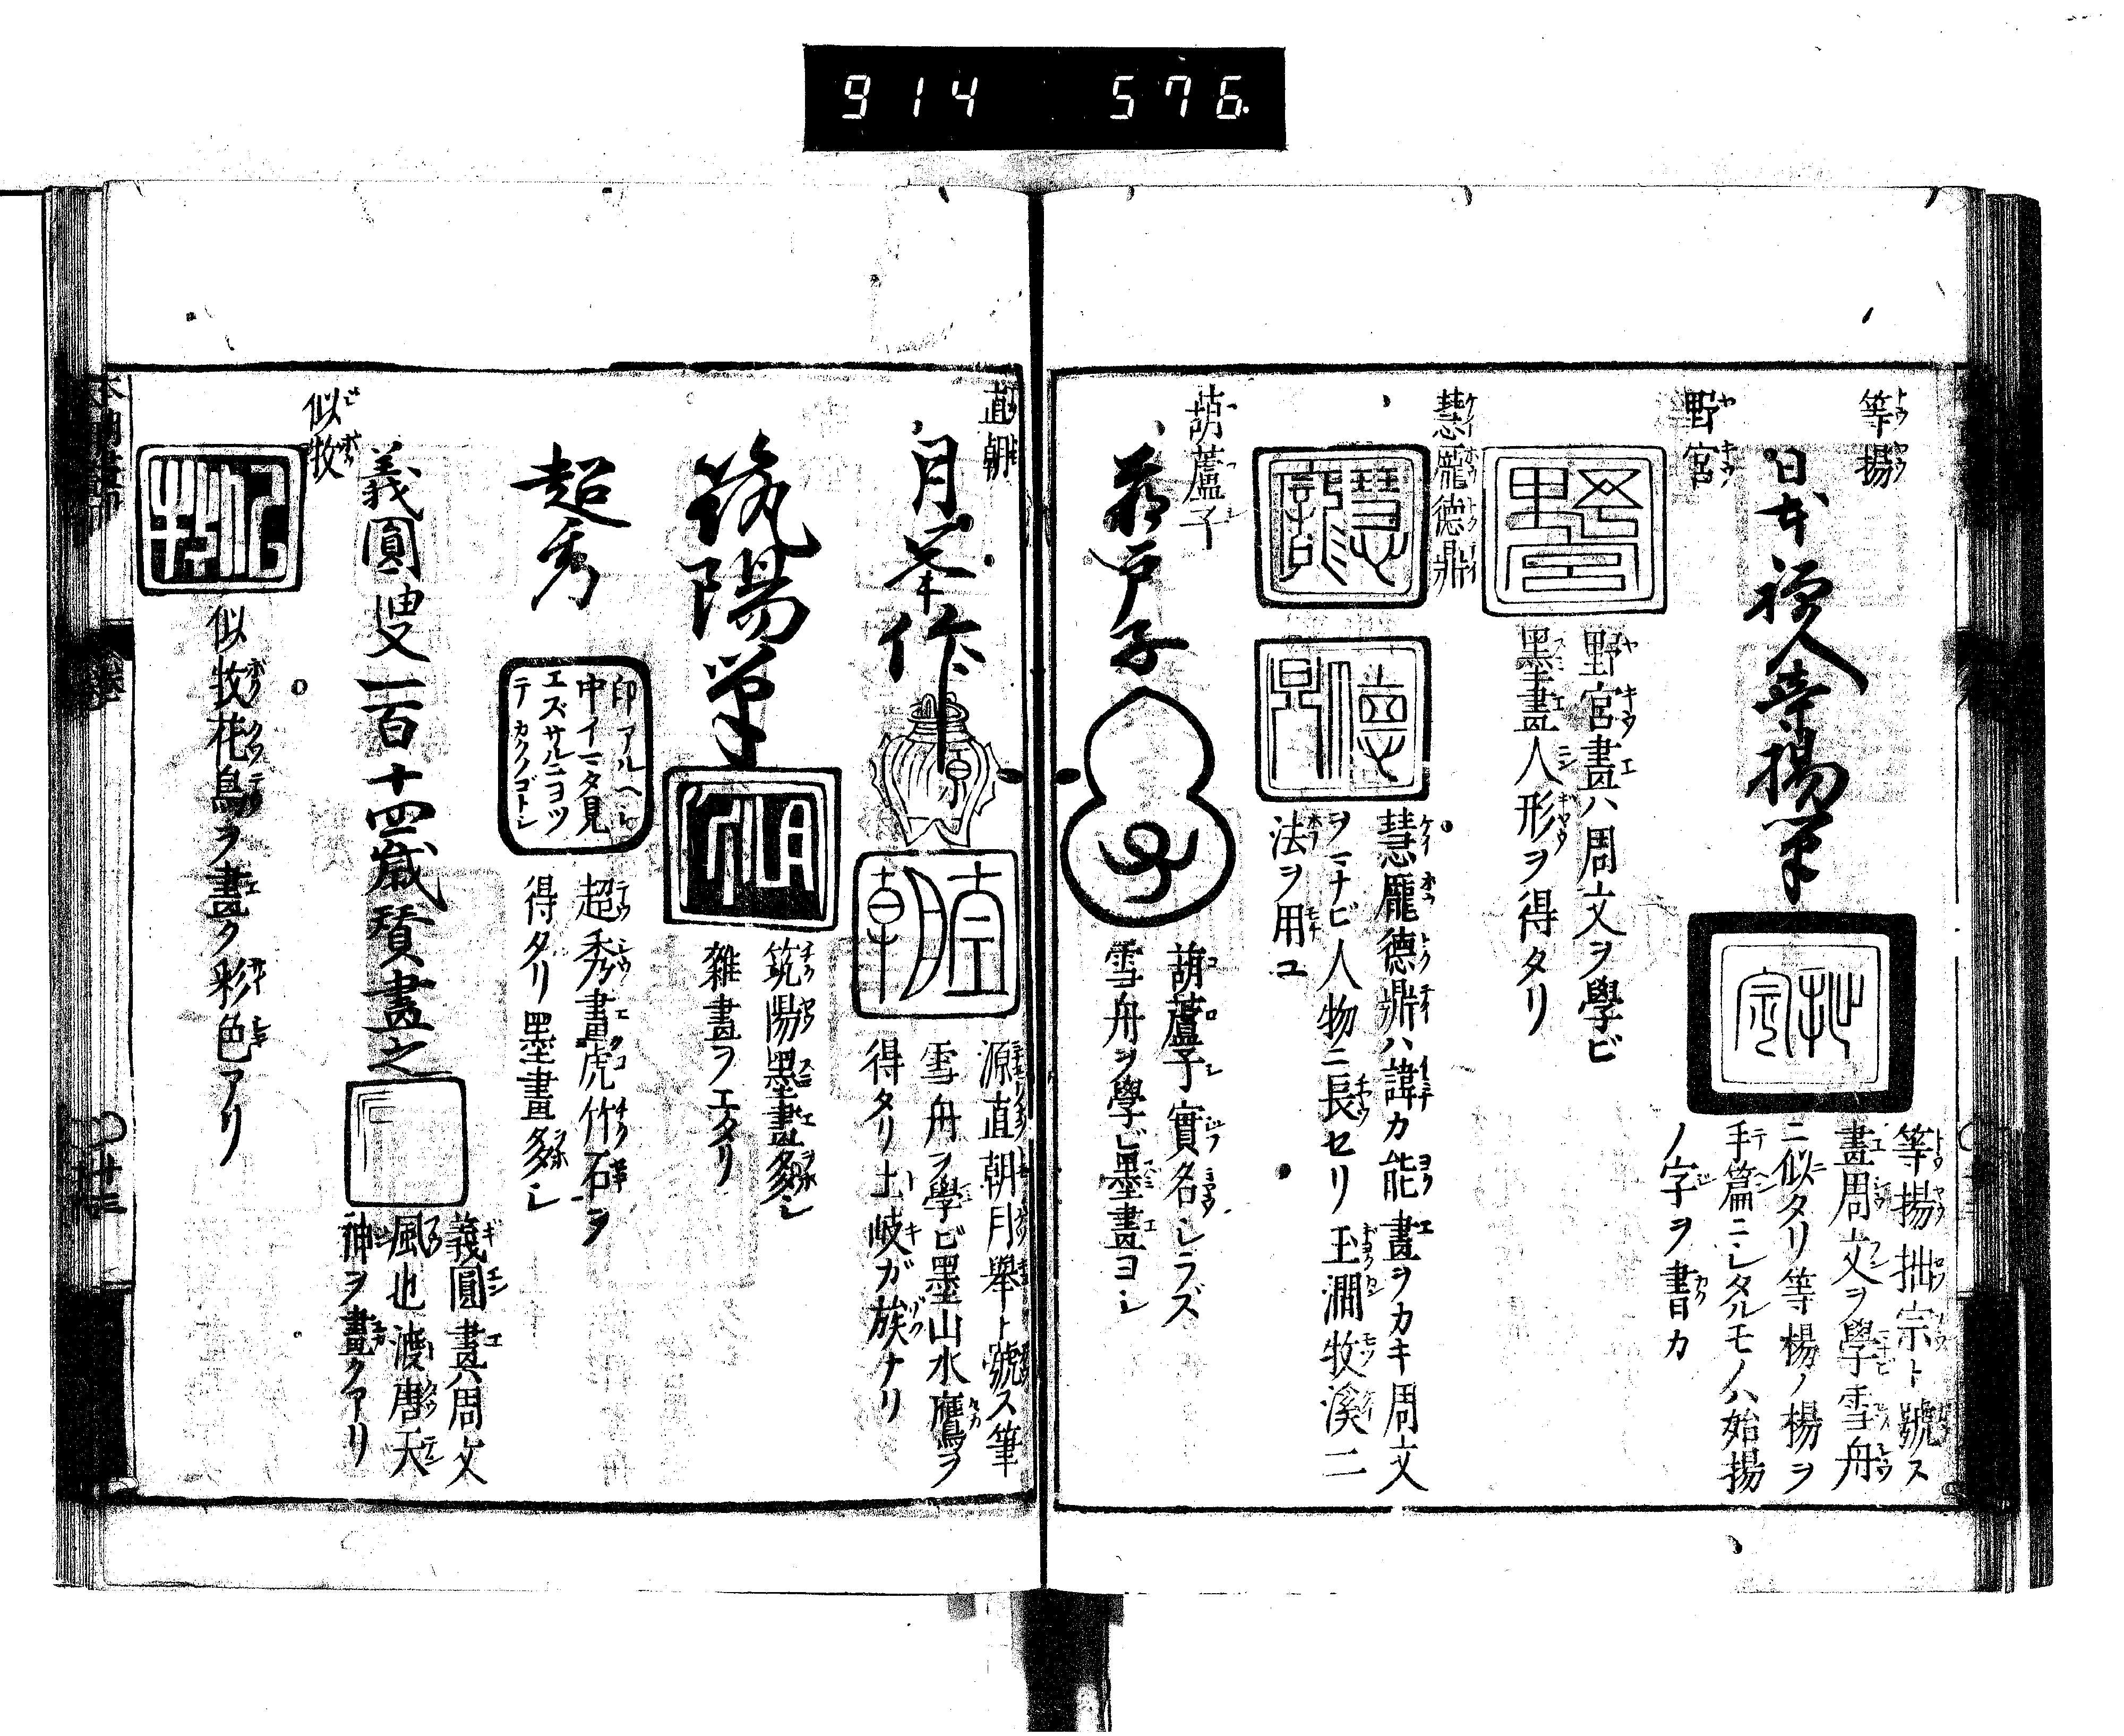 914 576
等揚
日本禅人等揚筆
等揚拙宗ト號ス
畫周文ヲ學雪舟
ニ似タリ等楊ノ楊ヲ
手篇ニシタルモノハ始揚
ノ字ヲ書カ
野宮
野宮畫ハ周文ヲ學ビ
墨畫人形ヲ得タリ
慧龐德鼎
慧龐德鼎ハ諱カ能畫ヲカキ周文
ヲマナビ人物ニ長セリ玉澗牧溪二
法ヲ用ユ
葫蘆子
葫蘆子實名シラズ
雪舟ヲ學ビ墨畫ヨシ
直朝
月峯作
源直朝月舉ト號ス筆
雪舟ヲ學ビ墨山水鷹ヲ
得タリ土岐ガ族ナリ
筑陽筆
筑陽墨畫多シ
雜畫ヲエタリ
超秀
印アルヘシ
中イマタ見
エズサルニヨツ
テカクノゴトシ
超秀畫虎竹石ヲ
得タリ墨畫多シ
義圓叟一百十四歲賛畫之
義圓畫ハ周文
風也渡唐天
神ヲ畫クアリ
似牧
似牧花鳥ヲ畫ク彩色アリ